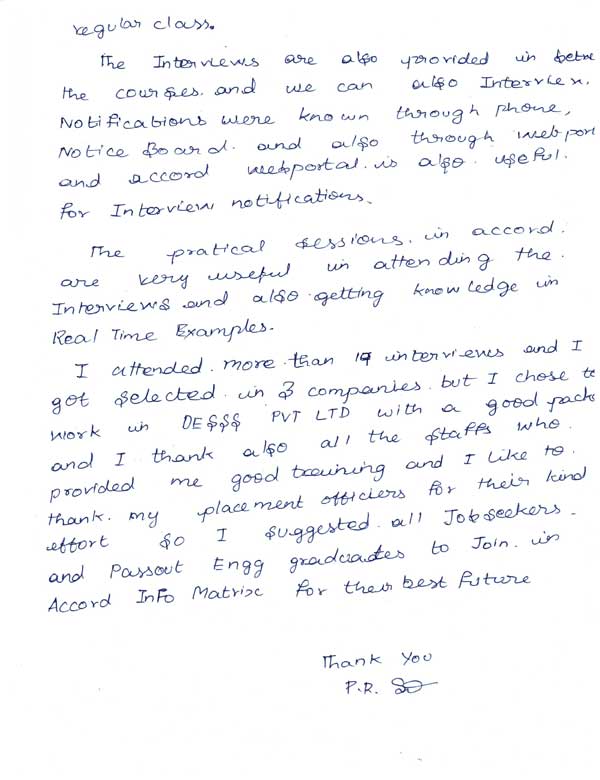 regular class.
The Interviews are also provided in betwe
the courses. and we can also Interview.
Notifications were known through phone,
Notice Board. and also through webport
and accord webportal. is also. useful.
for Interview notifications.
The pratical sessions. in accord.
are very useful in attending the.
Interviews and also getting knowledge in
Real Time Examples.
I attended. more than 19 interviews and I
got selected. in 3 companies. but I chose to
work in DESSS PVT LTD with a good pack
and I thank also all the staffs who.
provided me good training and I like to.
thank. my placement officiers for their kind
effort so I suggested. all Jobseekers.
and Passout Engg graduates to Join. in
Accord Info Matrix for their best future
Thank You
P.R.